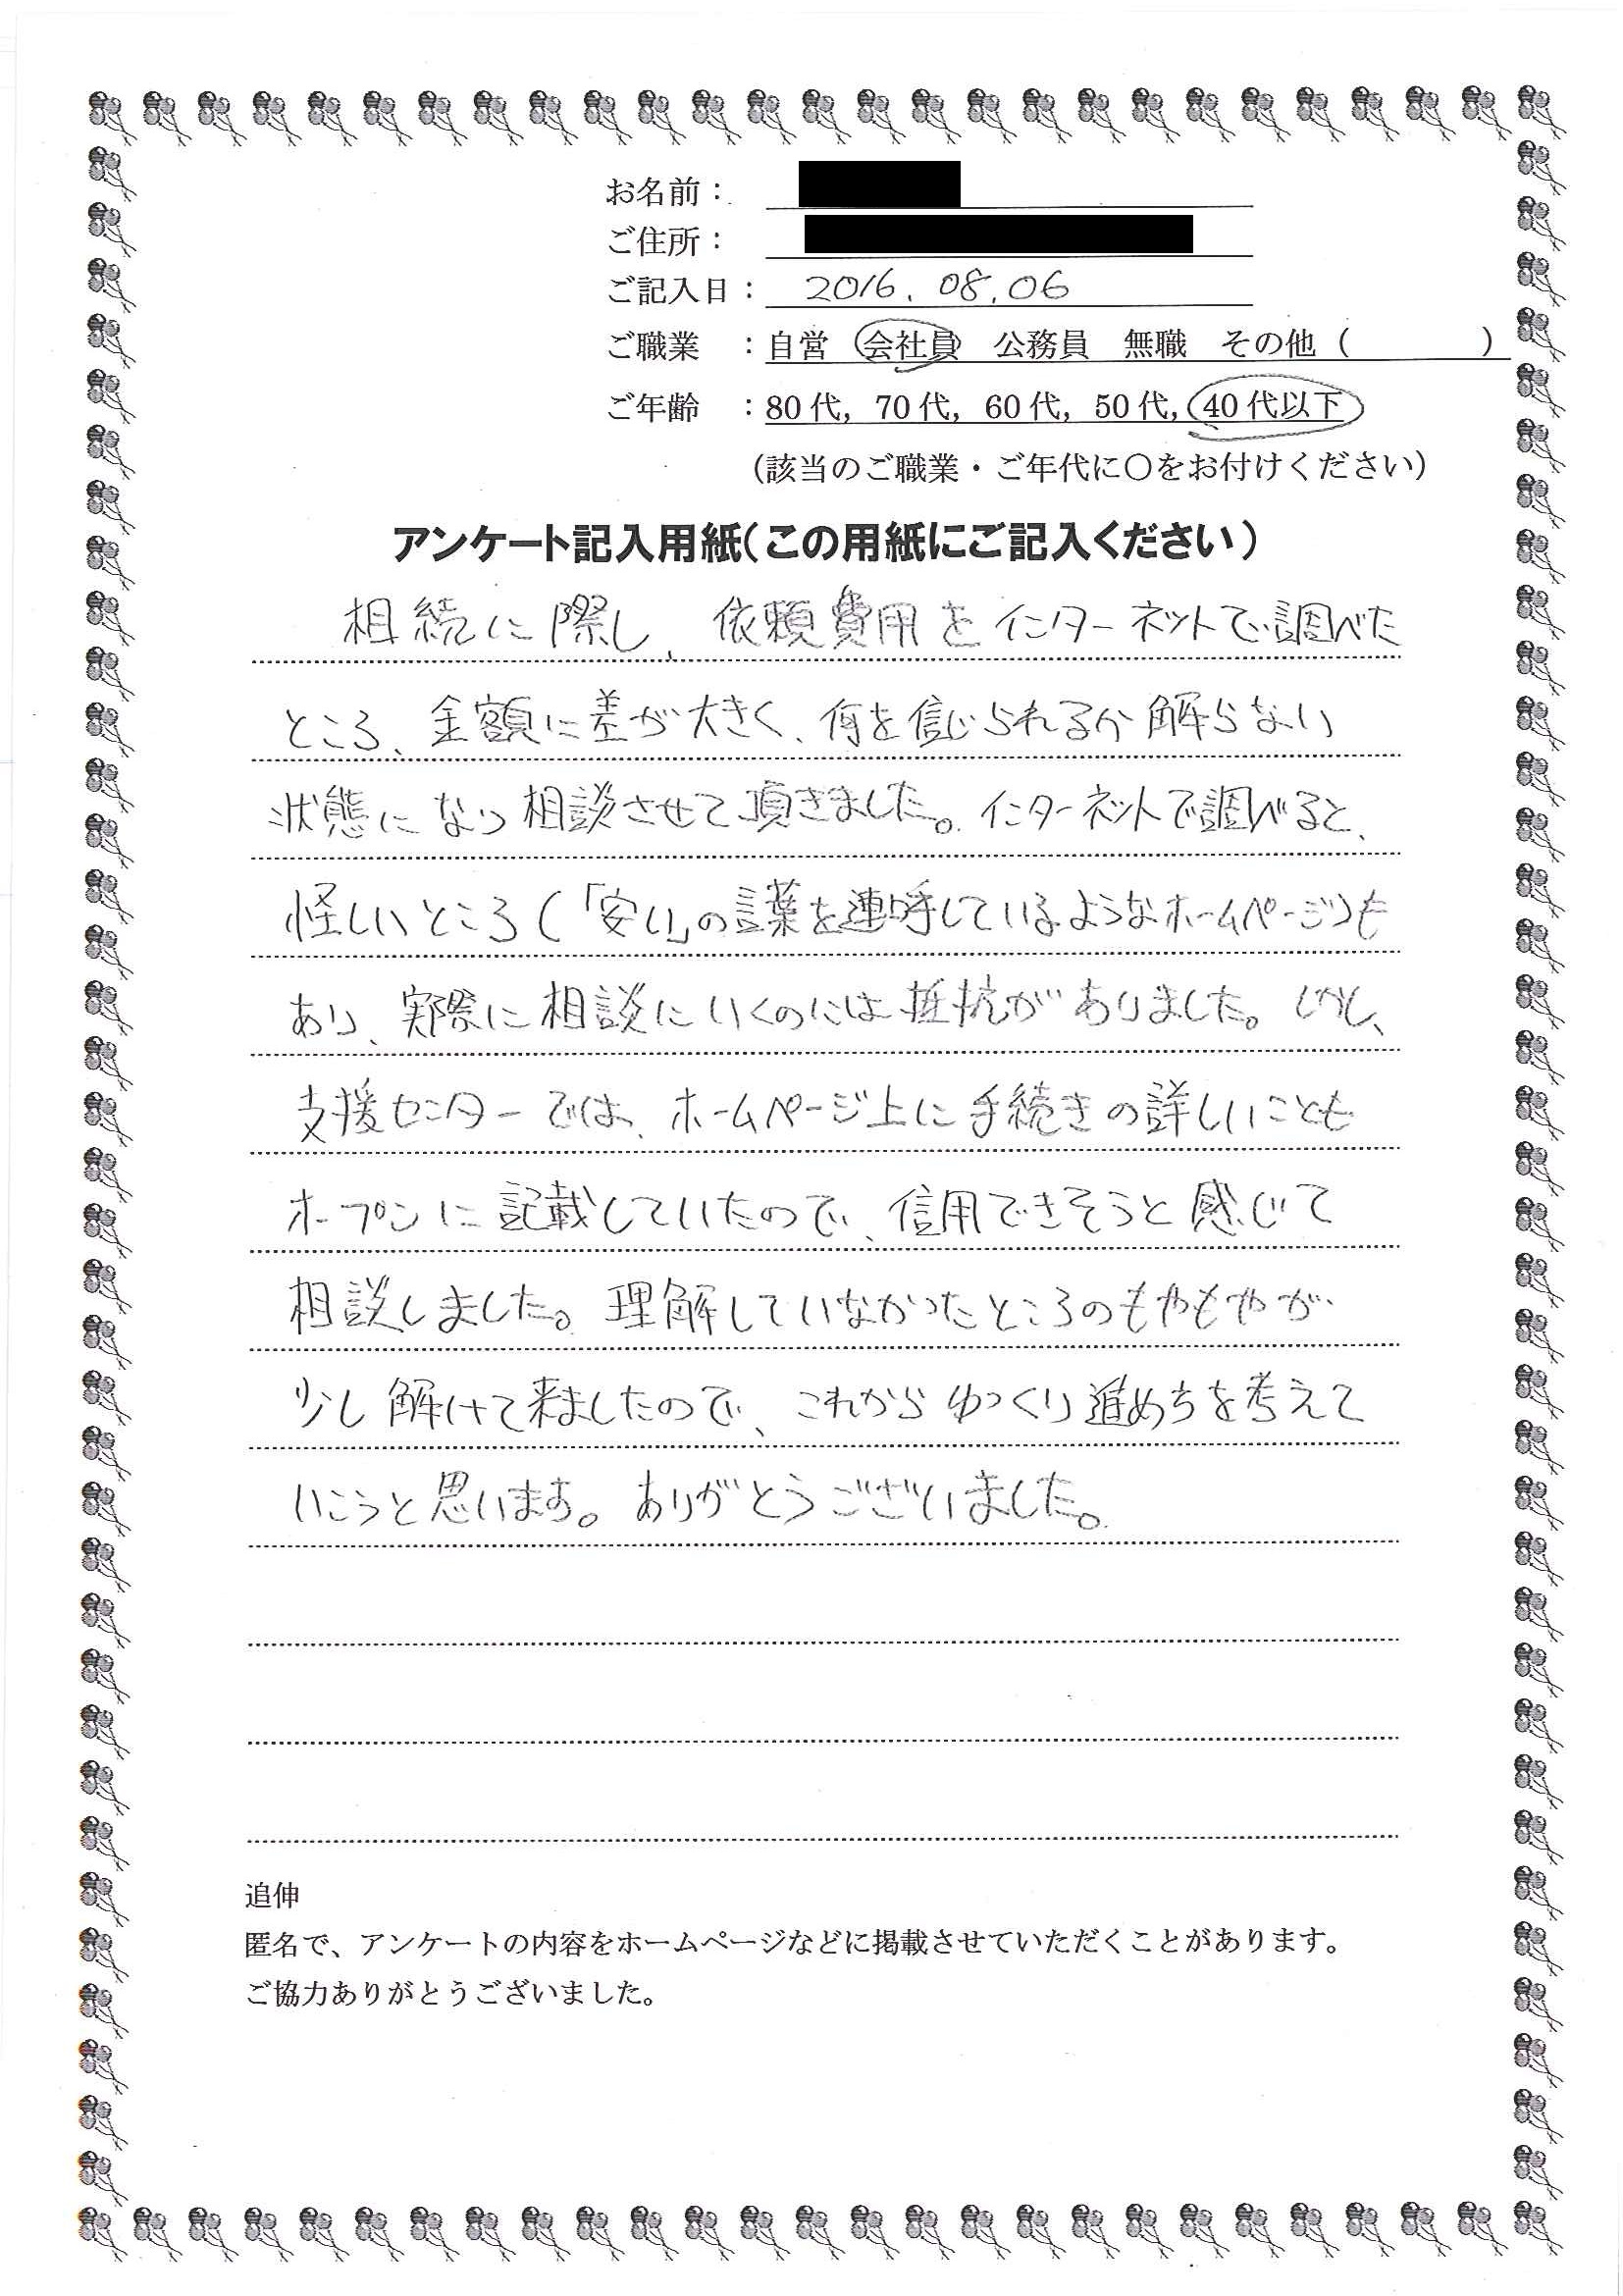 お名前：
ご住所：
ご記入日： 2016.08.06
ご職業 ：自営 会社員 公務員 無職 その他（ ）
ご年齢 ：80代，70代，60代，50代，40代以下
（該当のご職業・ご年代に〇をお付けください）
アンケート記入用紙（この用紙にご記入ください）
相続に際し、依頼費用をインターネットで調べた
ところ、金額に差が大きく、何を信じられるか解らない
状態になり相談させて頂きました。インターネットで調べると、
怪しいところ（「安い」の言葉を連呼しているようなホームページ）も
あり、実際に相談にいくのには抵抗がありました。しかし、
支援センターでは、ホームページ上に手続きの詳しいことも
オープンに記載していたので、信用できそうと感じて
相談しました。理解していなかったところのもやもやが
少し解けて来ましたので、これからゆっくり進め方を考えて
いこうと思います。ありがとうございました。
追伸
匿名で、アンケートの内容をホームページなどに掲載させていただくことがあります。
ご協力ありがとうございました。